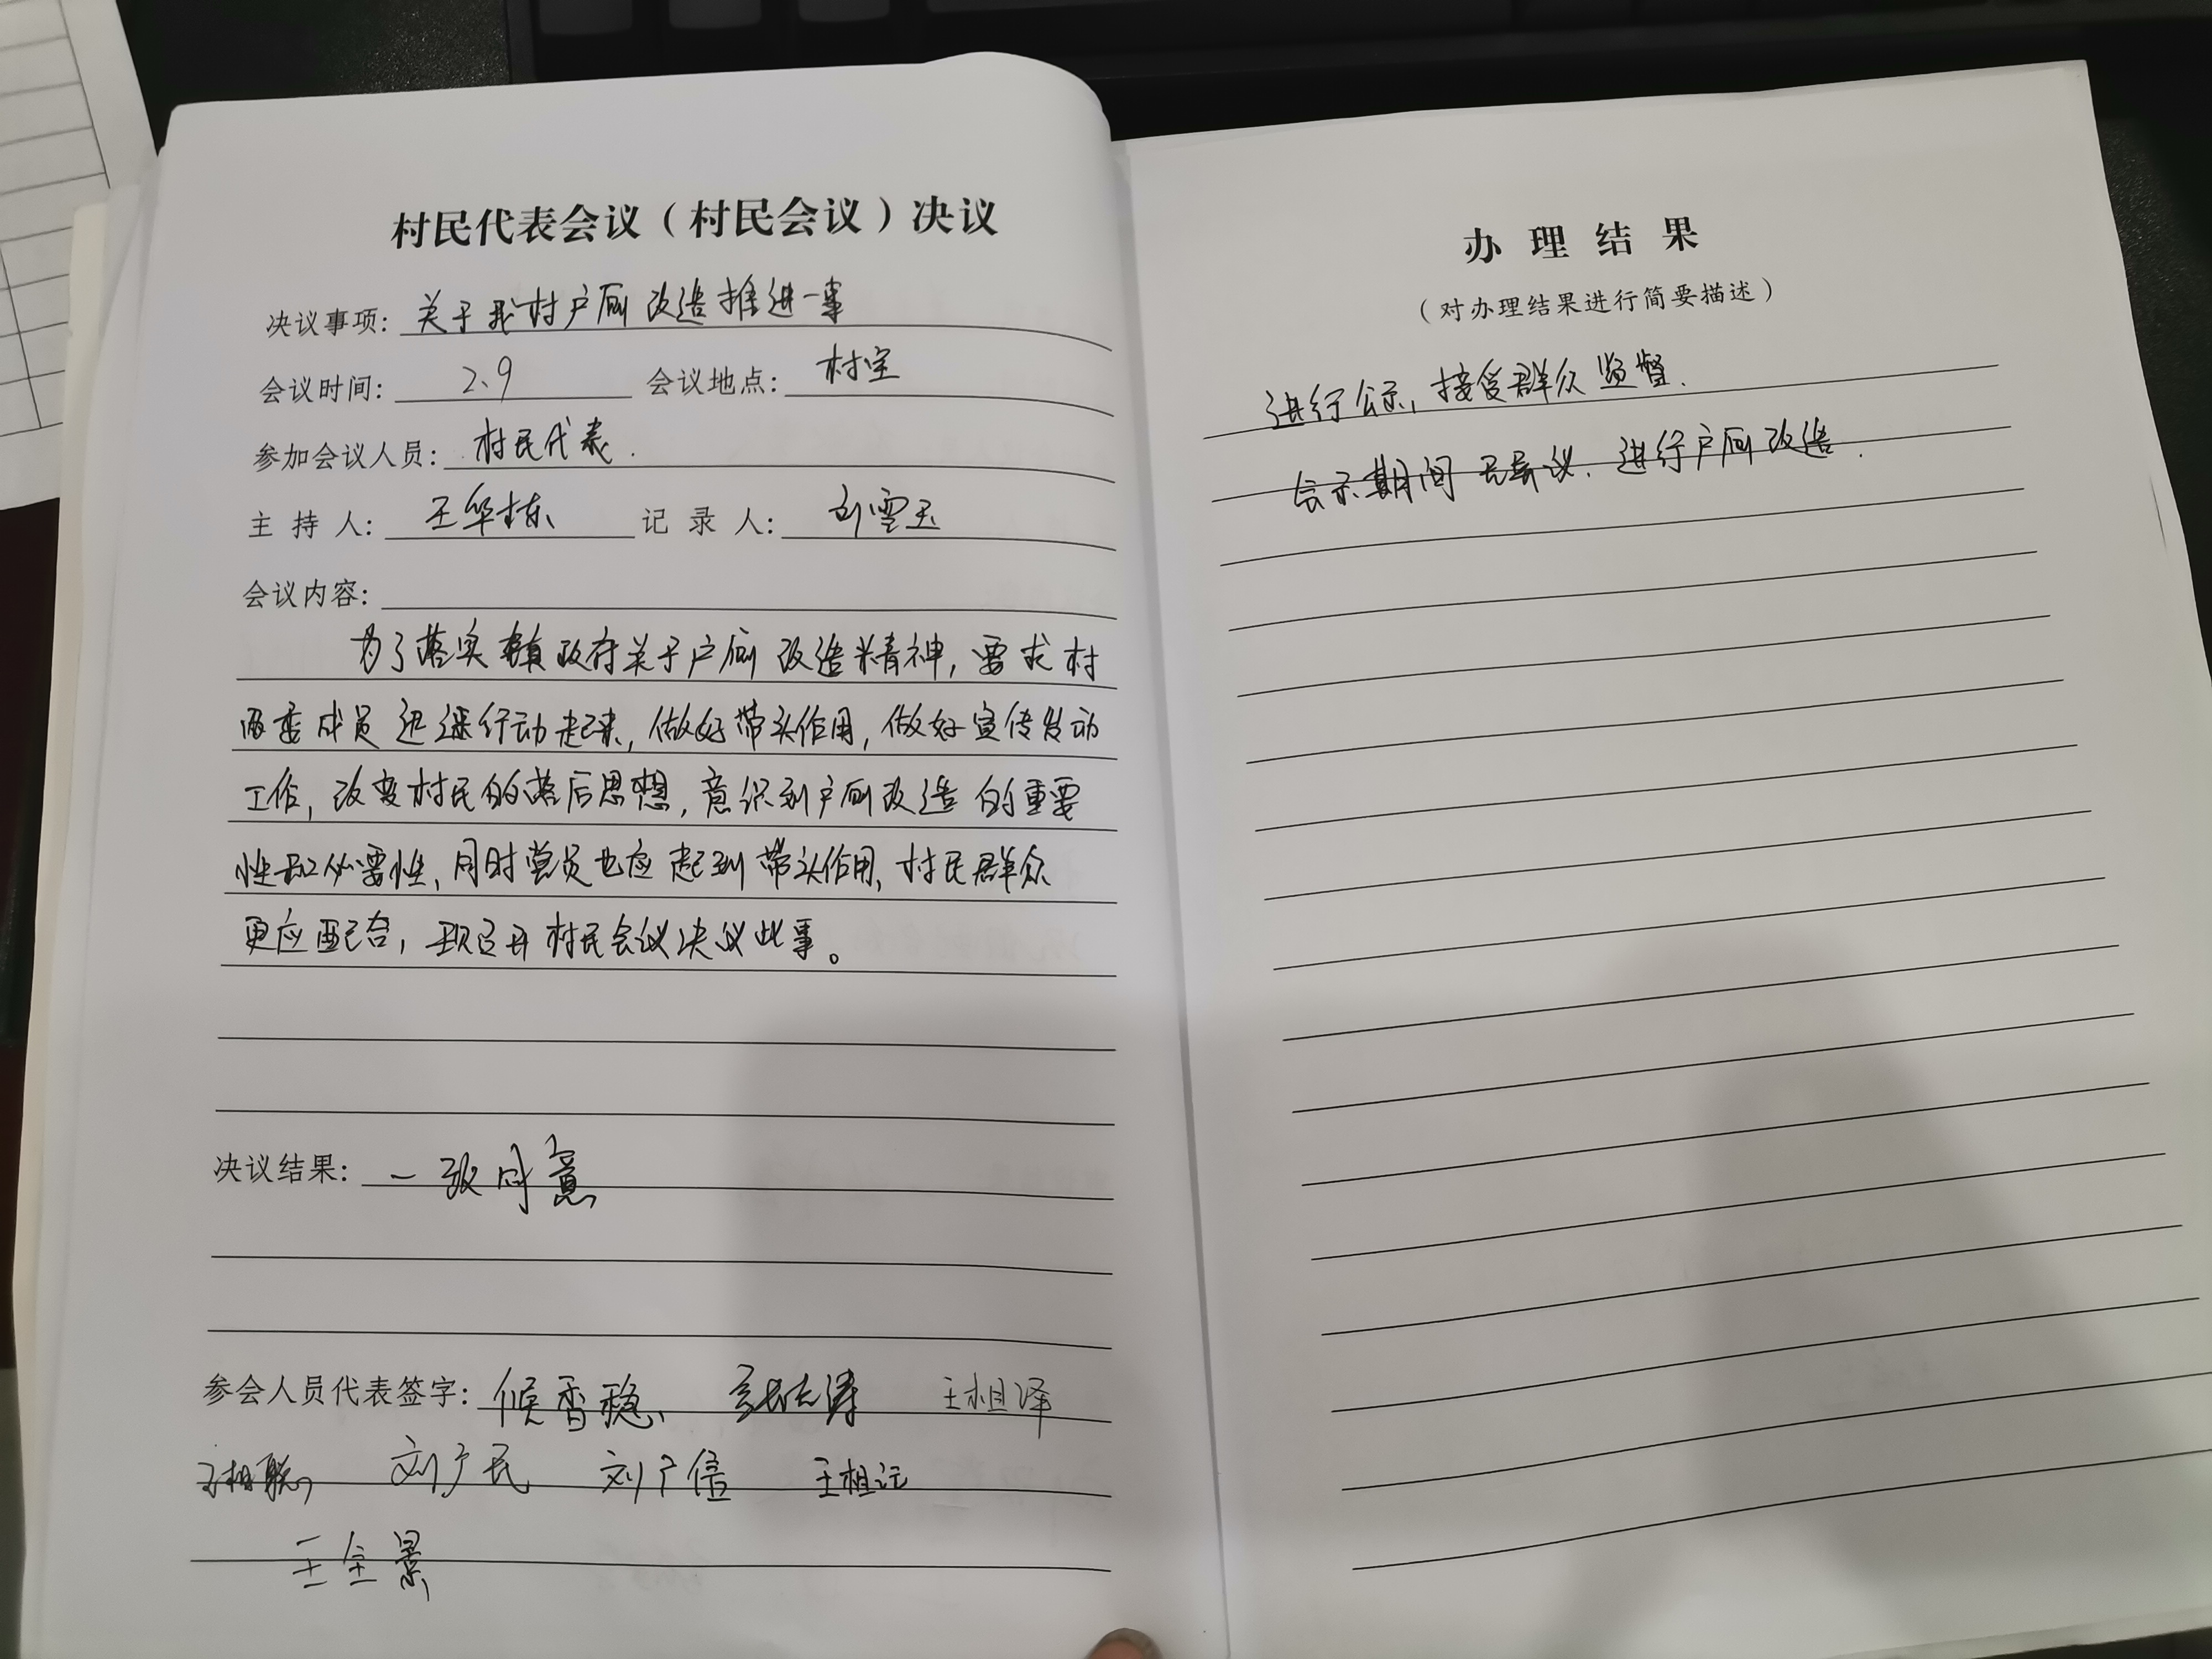 村民代表会议（村民会议）决议
决议事项：关于我村户厕改造推进一事
会议时间：2、9 会议地点：村室
参加会议人员：村民代表.
主持人：王华栋 记录人：刘雪玉
会议内容：
为了落实镇政府关于户厕改造精神，要求村
两委成员迅速行动起来，做好带头作用，做好宣传发动
工作，改变村民的落后思想，意识到户厕改造的重要
性和必要性，同时党员也应起到带头作用，村民群众
更应配合，现召开村民会议决议此事。
决议结果：一致同意
参会人员代表签字：候香稳、 王祖泽
刘广民 刘广信
王全景
办理结果
（对办理结果进行简要描述）
进行公示，接受群众监督.
公示期间无异议.进行户厕改造.